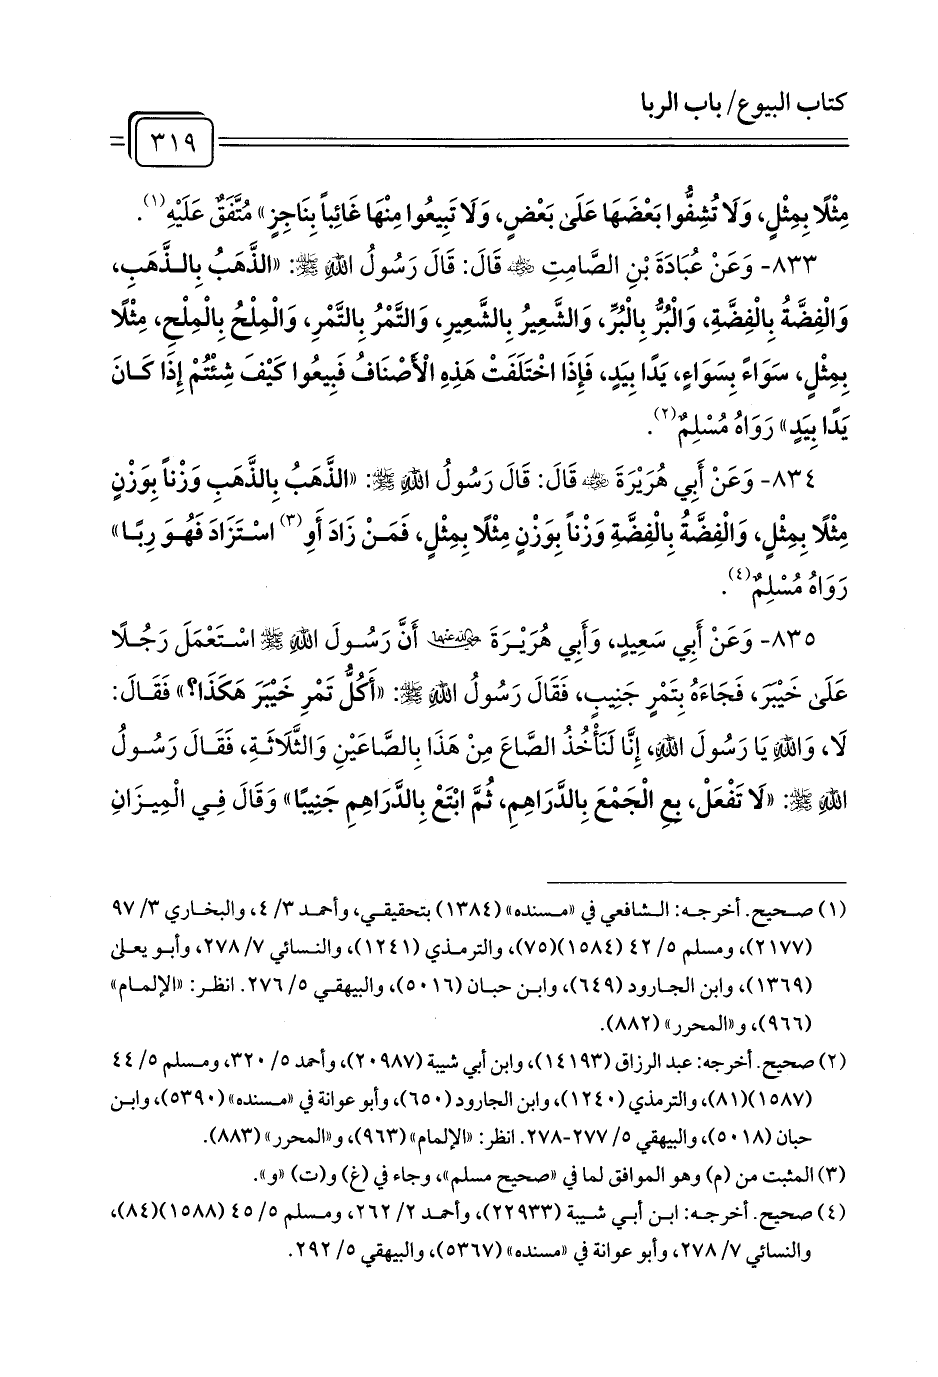 كتاب البيوع/ باب الربا
٣١٩
مِثْلًا بِمِثْلٍ، وَلَا تُشِفُّوا بَعْضَهَا عَلَىٰ بَعْضٍ، وَلَا تَبِيعُوا مِنْهَا غَائِباً بِنَاجِزٍ» مُتَّفَقٌ عَلَيْهِ(١).
٨٣٣- وَعَنْ عُبَادَةَ بْنِ الصَّامِتِ ﵁ قَالَ: قَالَ رَسُولُ اللهِ ﷺ: «الذَّهَبُ بِالذَّهَبِ،
وَالْفِضَّةُ بِالْفِضَّةِ، وَالْبُرُّ بِالْبُرِّ، وَالشَّعِيرُ بِالشَّعِيرِ، وَالتَّمْرُ بِالتَّمْرِ، وَالْمِلْحُ بِالْمِلْحِ، مِثْلًا
بِمِثْلٍ، سَوَاءً بِسَوَاءٍ، يَدًا بِيَدٍ، فَإِذَا اخْتَلَفَتْ هَذِهِ الْأَصْنَافُ فَبِيعُوا كَيْفَ شِئْتُمْ إِذَا كَانَ
يَدًا بِيَدٍ» رَوَاهُ مُسْلِمٌ(٢).
٨٣٤- وَعَنْ أَبِي هُرَيْرَةَ ﵁ قَالَ: قَالَ رَسُولُ اللهِ ﷺ: «الذَّهَبُ بِالذَّهَبِ وَزْناً بِوَزْنٍ
مِثْلًا بِمِثْلٍ، وَالْفِضَّةُ بِالْفِضَّةِ وَزْناً بِوَزْنٍ مِثْلًا بِمِثْلٍ، فَمَنْ زَادَ أَوِ(٣) اسْتَزَادَ فَهُوَ رِبًا»
رَوَاهُ مُسْلِمٌ(٤).
٨٣٥- وَعَنْ أَبِي سَعِيدٍ، وَأَبِي هُرَيْرَةَ ﵄ أَنَّ رَسُولَ اللهِ ﷺ اسْتَعْمَلَ رَجُلًا
عَلَىٰ خَيْبَرَ، فَجَاءَهُ بِتَمْرٍ جَنِيبٍ، فَقَالَ رَسُولُ اللهِ ﷺ: «أَكُلُّ تَمْرِ خَيْبَرَ هَكَذَا؟» فَقَالَ:
لَا، وَاللهِ يَا رَسُولَ اللهِ، إِنَّا لَنَأْخُذُ الصَّاعَ مِنْ هَذَا بِالصَّاعَيْنِ وَالثَّلَاثَةِ، فَقَالَ رَسُولُ
اللهِ ﷺ: «لَا تَفْعَلْ، بِعِ الْجَمْعَ بِالدَّرَاهِمِ، ثُمَّ ابْتَعْ بِالدَّرَاهِمِ جَنِيبًا» وَقَالَ فِي الْمِيزَانِ
(١) صحيح. أخرجه: الشافعي في «مسنده» (١٣٨٤) بتحقيقي، وأحمد ٣/ ٤، والبخاري ٣/ ٩٧
(٢١٧٧)، ومسلم ٥/ ٤٢ (١٥٨٤)(٧٥)، والترمذي (١٢٤١)، والنسائي ٧/ ٢٧٨، وأبو يعلى
(١٣٦٩)، وابن الجارود (٦٤٩)، وابن حبان (٥٠١٦)، والبيهقي ٥/ ٢٧٦. انظر: «الإلمام»
(٩٦٦)، و«المحرر» (٨٨٢).
(٢) صحيح. أخرجه: عبد الرزاق (١٤١٩٣)، وابن أبي شيبة (٢٠٩٨٧)، وأحمد ٥/ ٣٢٠، ومسلم ٥/ ٤٤
(١٥٨٧)(٨١)، والترمذي (١٢٤٠)، وابن الجارود (٦٥٠)، وأبو عوانة في «مسنده» (٥٣٩٠)، وابن
حبان (٥٠١٨)، والبيهقي ٥/ ٢٧٧-٢٧٨. انظر: «الإلمام» (٩٦٣)، و«المحرر» (٨٨٣).
(٣) المثبت من (م) وهو الموافق لما في «صحيح مسلم»، وجاء في (غ) و(ت) «و».
(٤) صحيح. أخرجه: ابن أبي شيبة (٢٢٩٣٣)، وأحمد ٢/ ٢٦٢، ومسلم ٥/ ٤٥ (١٥٨٨)(٨٤)،
والنسائي ٧/ ٢٧٨، وأبو عوانة في «مسنده» (٥٣٦٧)، والبيهقي ٥/ ٢٩٢.